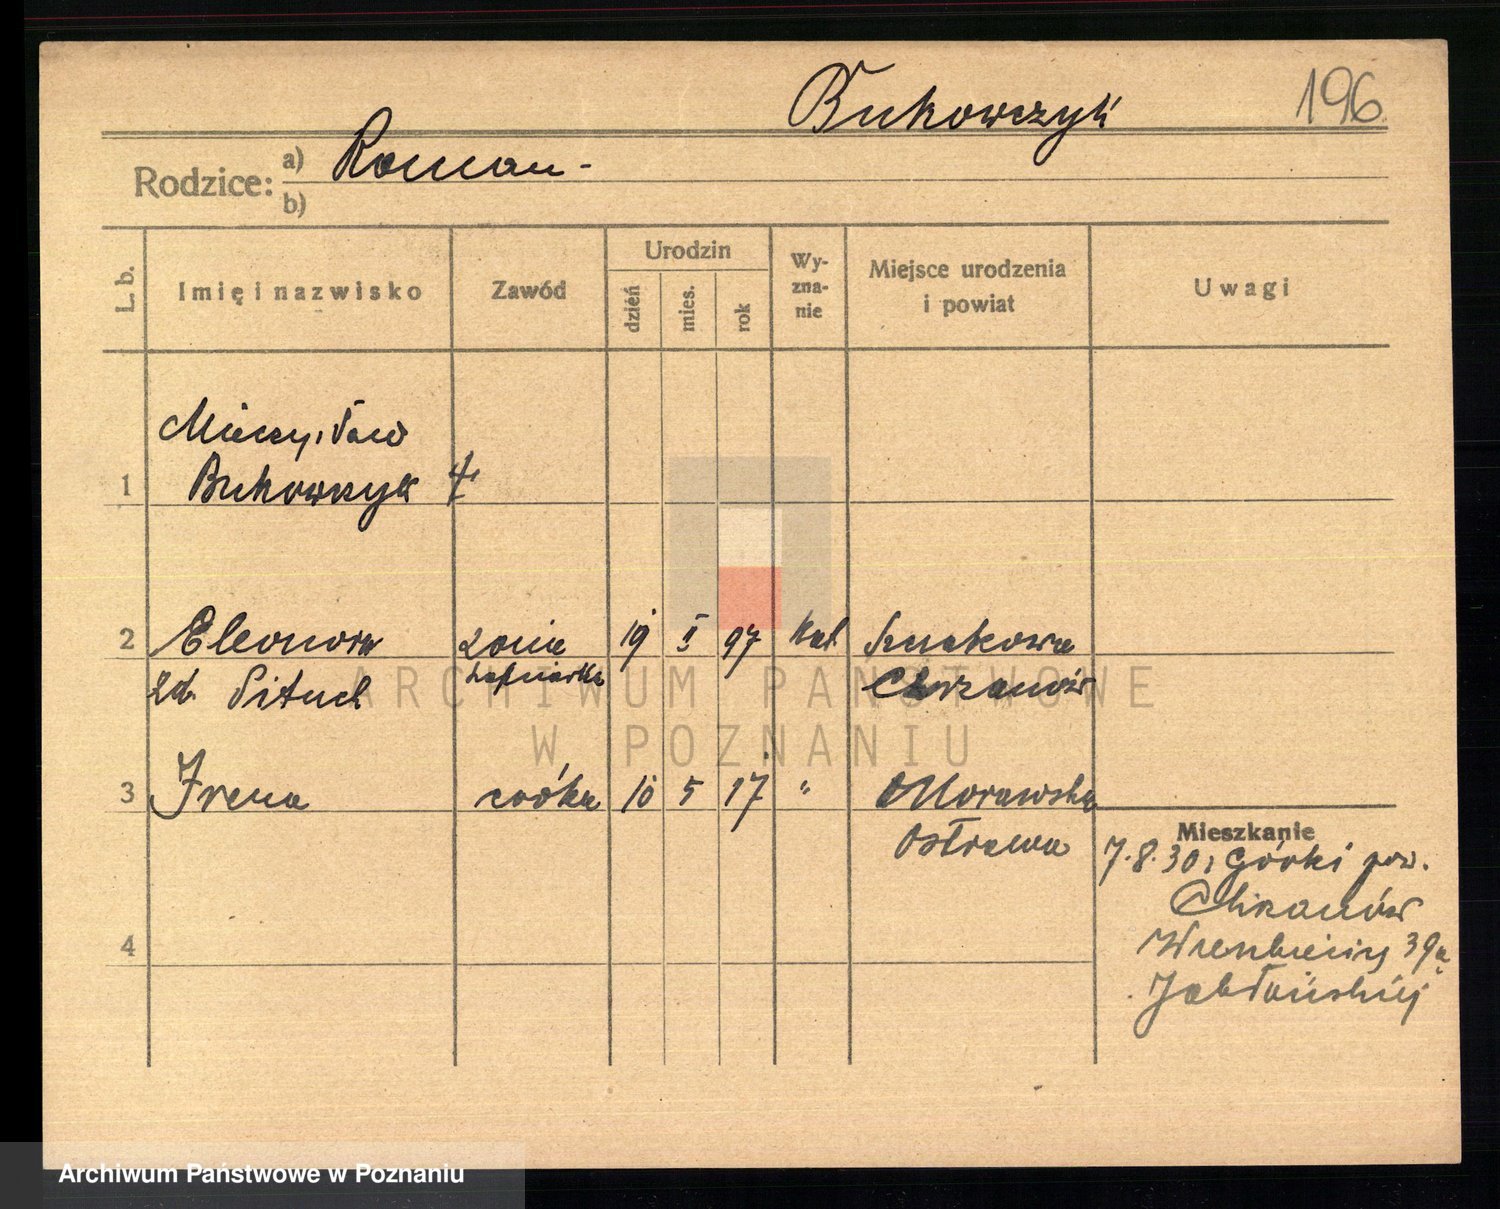 Bukowczyk 196
Rodzice: a) Roman -
b)
L. b. Imię i nazwisko Zawód Urodzin dzień mies. rok Wy-zna-nie Miejsce urodzenia i powiat Uwagi
Mieczysław
1 Bukowczyk
2 Eleonora żona 19 II 97 kat. Szczakowa
zd. Pituch Chrzanów
3 Irena córka 10 5 17 " Morawska
Ostrawa
Mieszkanie
7.8.30, Górki pow.
Chrzanów
39a
Jabłońskiej
4
ARCHIWUM PAŃSTWOWE
W POZNANIU
Archiwum Państwowe w Poznaniu